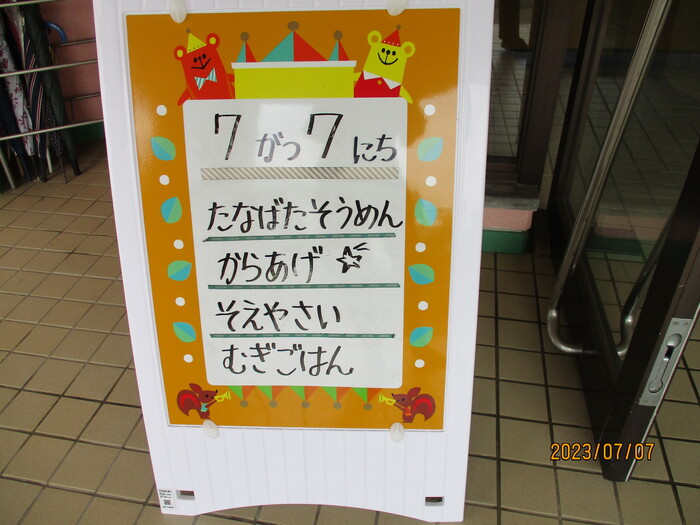 7がつ7にち
たなばたそうめん
からあげ
そえやさい
むぎごはん
2023/07/07